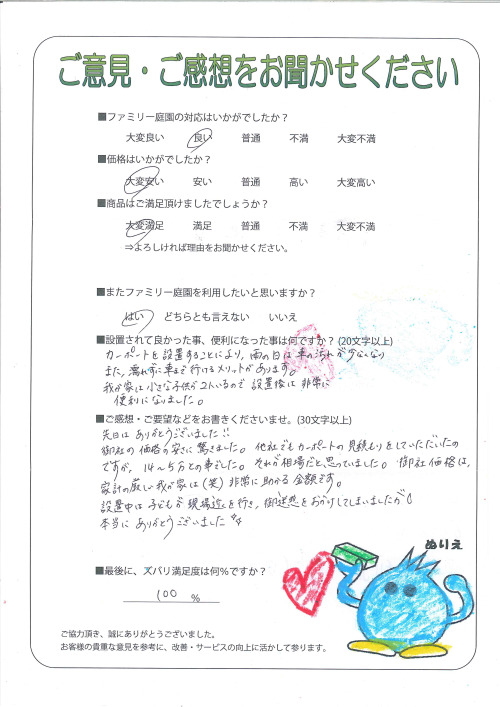 ご意見・ご感想をお聞かせください
■ファミリー庭園の対応はいかがでしたか？
大変良い 良い 普通 不満 大変不満
■価格はいかがでしたか？
大変安い 安い 普通 高い 大変高い
■商品はご満足頂けましたでしょうか？
大変満足 満足 普通 不満 大変不満
⇒よろしければ理由をお聞かせください。
■またファミリー庭園を利用したいと思いますか？
はい どちらとも言えない いいえ
■設置されて良かった事、便利になった事は何ですか？(20文字以上)
カーポートを設置することにより、雨の日は車の汚れが少なくなり
また、濡れずに車まで行けるメリットがあります。
我が家は小さな子供が2人いるので 設置後は非常に
便利になりました。
■ご感想・ご要望などをお書きくださいませ。(30文字以上)
先日は ありがとうございました!!
御社の価格の安さに驚きました。他社でもカーポートの見積もりをしていただいたの
ですが、14～5万との事でした。それが相場だと思っていました。御社価格は、
家計の厳しい我が家は(笑)非常に助かる金額です。
設置中は子どもが現場近を行き、御迷惑をおかけしてしまいましたが
本当に ありがとうございました
■最後に、ズバリ満足度は何％ですか？
100 %
ぬりえ
ご協力頂き、誠にありがとうございました。
お客様の貴重な意見を参考に、改善・サービスの向上に活かして参ります。